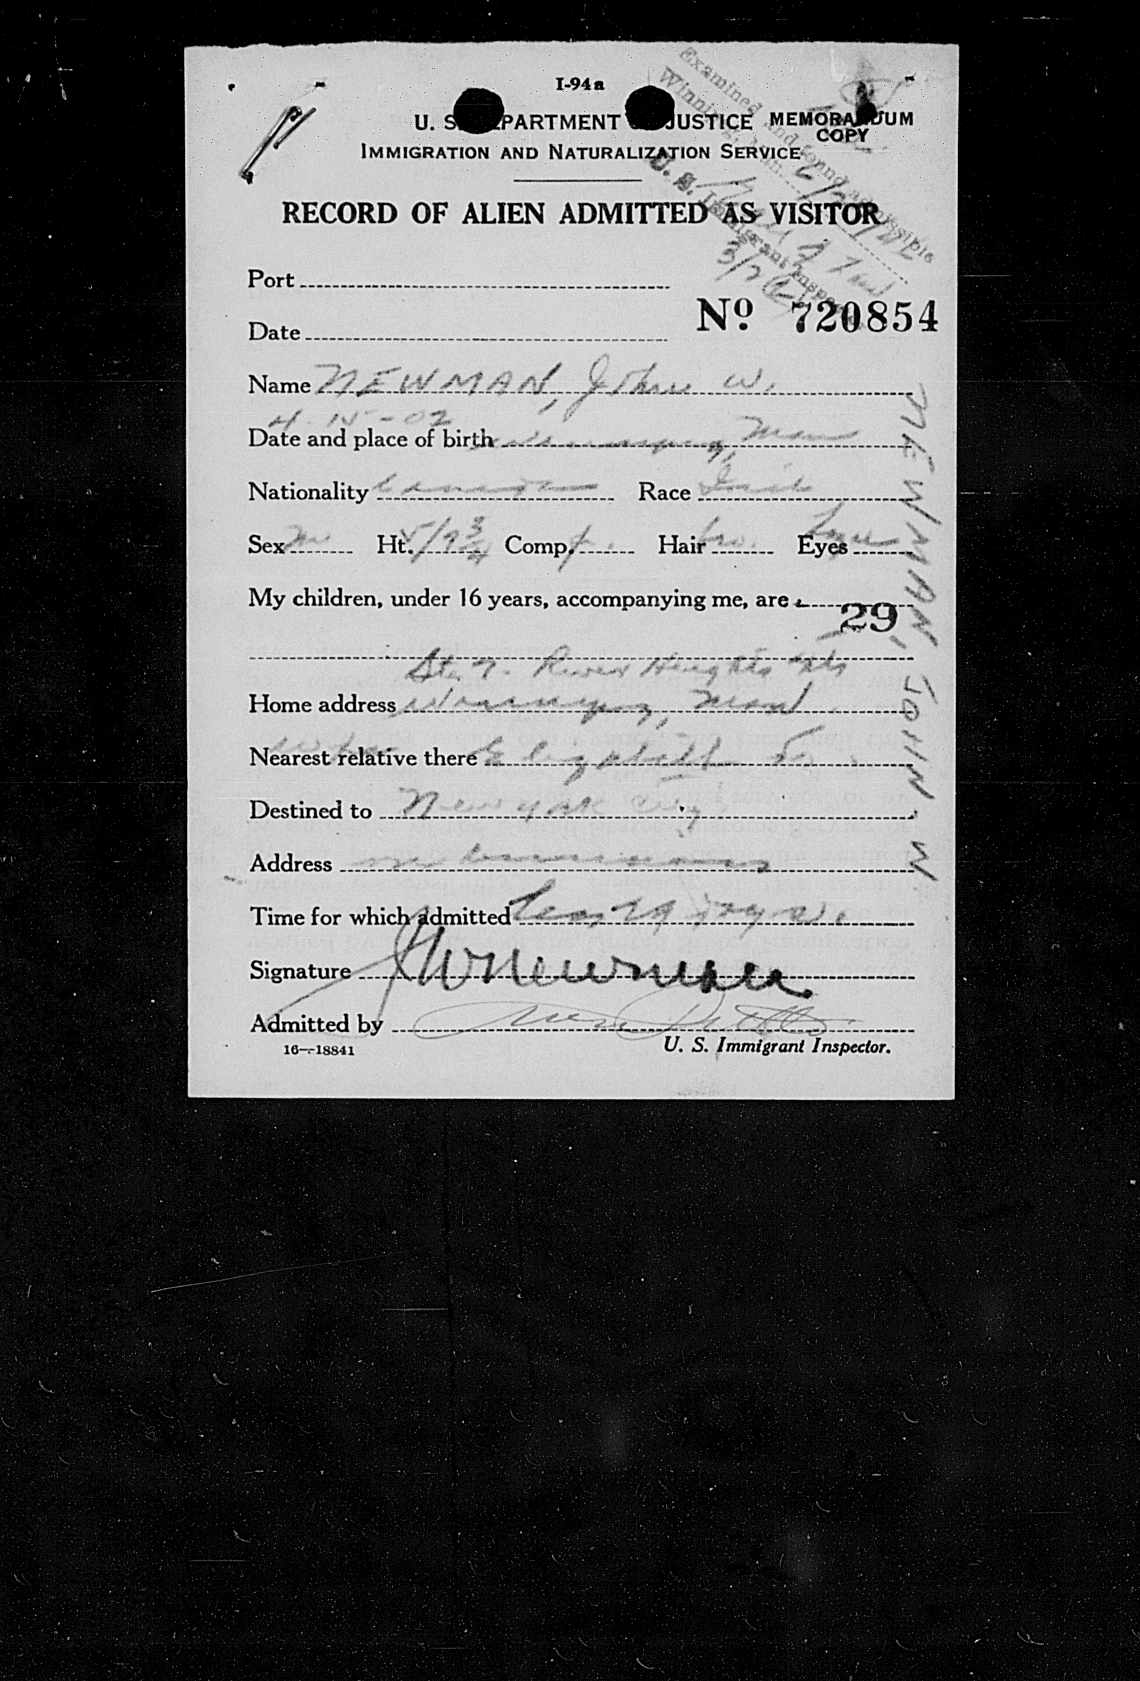 I-94a
U. S. DEPARTMENT OF JUSTICE MEMORANDUM
COPY
IMMIGRATION AND NATURALIZATION SERVICE
Examined and found admissible
Winnipeg, Man.
U. S. Immigrant Inspector
RECORD OF ALIEN ADMITTED AS VISITOR
Port
No. 720854
Date
Name NEWMAN, John W.
4-15-02
Date and place of birth Winnipeg, Man
Nationality Canadian Race Irish
Sex M Ht. 5/7 3/4 Comp. Hair bro. Eyes
My children, under 16 years, accompanying me, are
29
Ste 7. River Heights Apts
Home address Winnipeg, Man
Wife
Nearest relative there Elizabeth
Destined to New York City
Address
Time for which admitted Less 29 days
Signature JWNewman
Admitted by
16-18841 U. S. Immigrant Inspector.
NEWMAN, JOHN. W